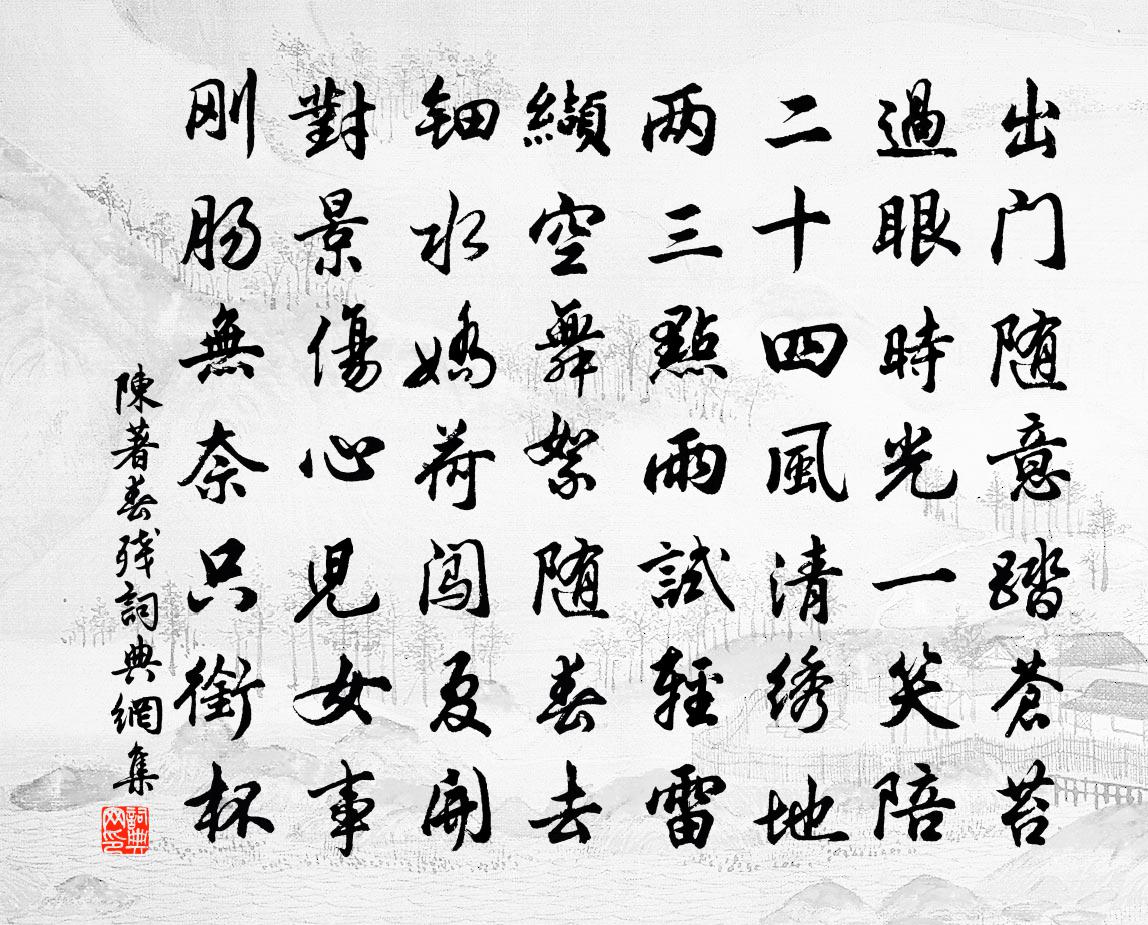 出门随意踏蒼苔
過眼時光一笑陪
二十四風清绣地
两三點雨試輕雷
纈空舞絮随春去
鈿水嬌荷闯夏開
對景傷心児女事
刚肠無奈只銜杯
陳著春残詞典網集
詞典网印